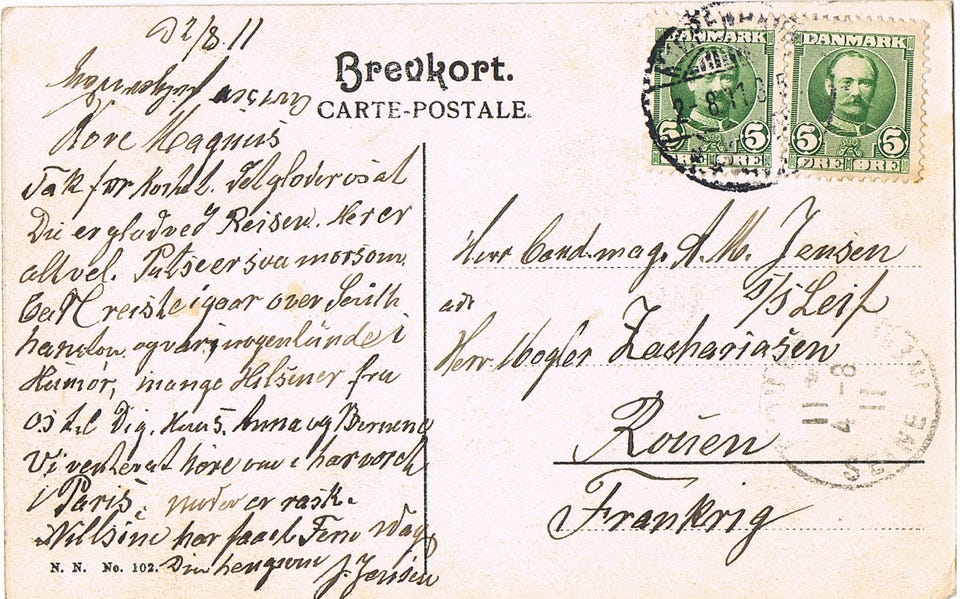 D 2/8 11
Brevkort.
CARTE-POSTALE.
Kære Magnus
Tak for kortet. Det gloder os at
Du er glad ved Reisen. Her er
alt vel. Putse er saa morsom.
Carl reiste igaar over South
hamton og var i nogenlunde i
Humør, mange Hilsner fra
os til Dig. Anna og
Vi venter at høre om i har vordt
i Paris. moder er rask.
Nillsine har faaet Ferie idag
Din hengivne J. Jensen
N. N. No. 102.
DANMARK
5 ØRE
2-8.11
DANMARK
5 5
ØRE ØRE
Herr Cand. mag. A. M. Jensen
S/S Leif
adr
Herr Mægler Zachariasen
Rouen
Frankrig
11
4-8
11
SEINE